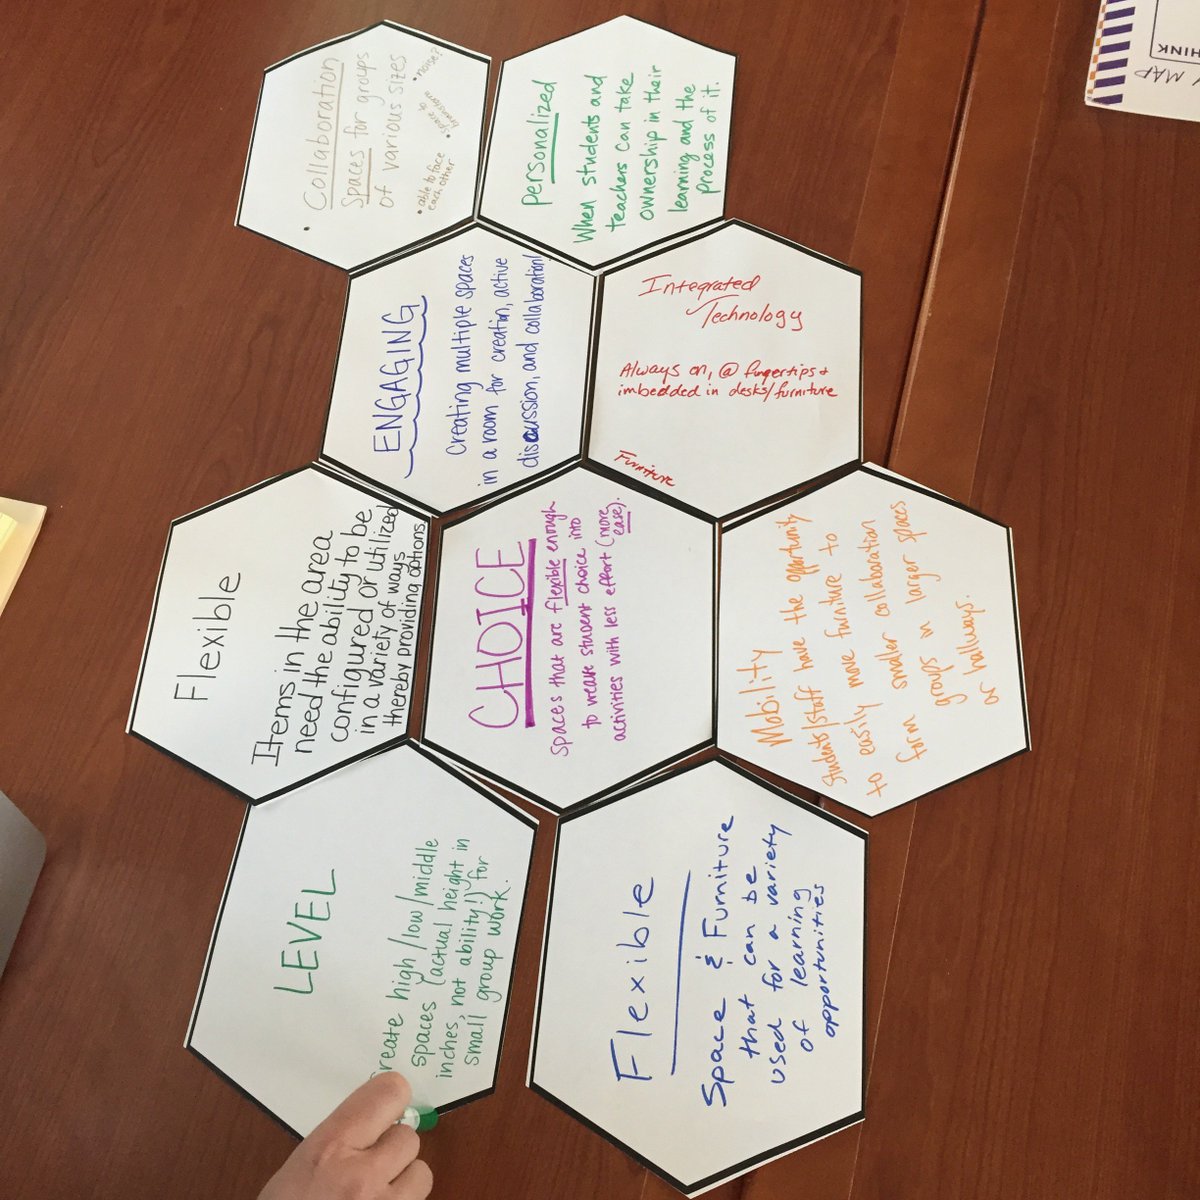 Collaboration
Spaces for groups
of various sizes
• able to face
each other
• space to
transform
• noise?
personalized
When students and
teachers can take
ownership in their
learning and the
process of it.
ENGAGING
Creating multiple spaces
in a room for creation, active
discussion, and collaboration!
Integrated
Technology
Always on, @ fingertips +
imbedded in desks/furniture
Furniture
Flexible
Items in the area
need the ability to be
configured or utilized
in a variety of ways
thereby providing options.
CHOICE
Spaces that are flexible enough
to weave student choice into
activities with less effort (more
ease).
Mobility
Students/staff have the opportunity
to easily move furniture to
form smaller collaboration
groups in larger spaces
or hallways.
LEVEL
reate high/low/middle
spaces (actual height in
inches, not ability!) for
small group work.
Flexible
Space & Furniture
that can be
used for a variety
of learning
opportunities
HINK
MAP